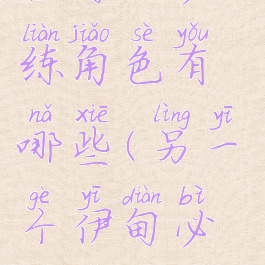 liàn jiǎo sè yǒu
练角色有
nǎ xiē lìng yī
哪些(另一
gè yī diàn bì
个伊甸必